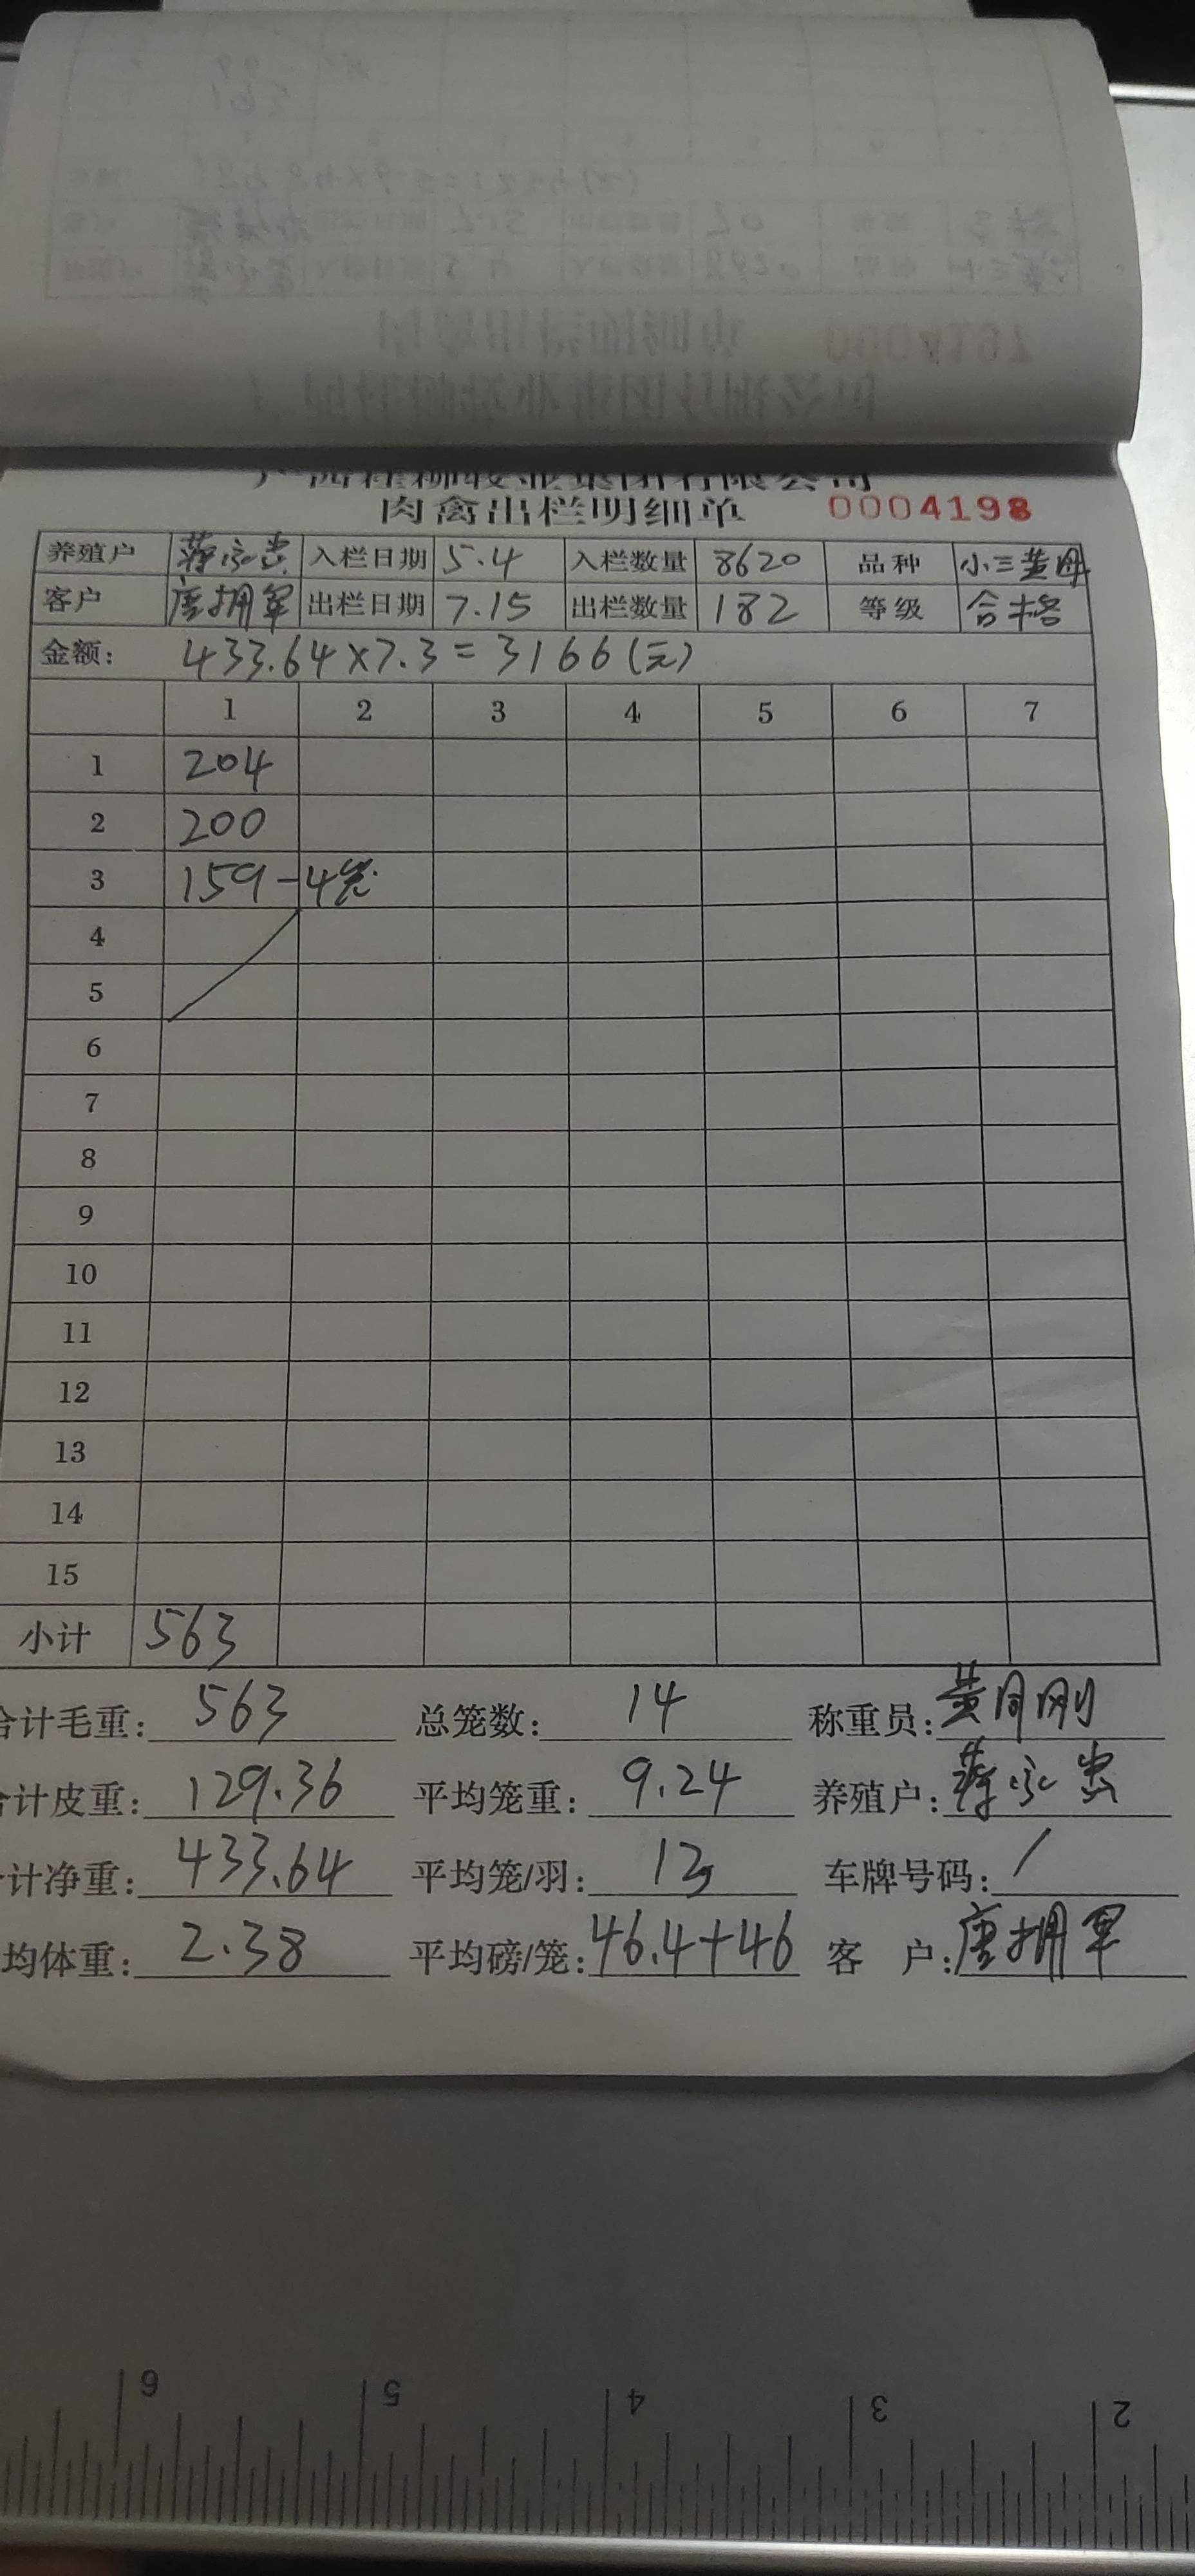 肉禽出栏明细单 0004198
养殖户 蒋永忠 入栏日期 5.4 入栏数量 8620 品种 小三黄母
客户 唐拥军 出栏日期 7.15 出栏数量 182 等级 合格
金额: 433.64×7.3=3166(元)
1 2 3 4 5 6 7
1 204
2 200
3 159-4笼
4
5
6
7
8
9
10
11
12
13
14
15
小计 563
合计毛重: 563 总笼数: 14 称重员: 黄月刚
计皮重: 129.36 平均笼重: 9.24 养殖户: 蒋永忠
计净重: 433.64 平均笼/羽: 13 车牌号码: /
均体重: 2.38 平均磅/笼: 46.4+46 客户: 唐拥军
6 5 4 3 2